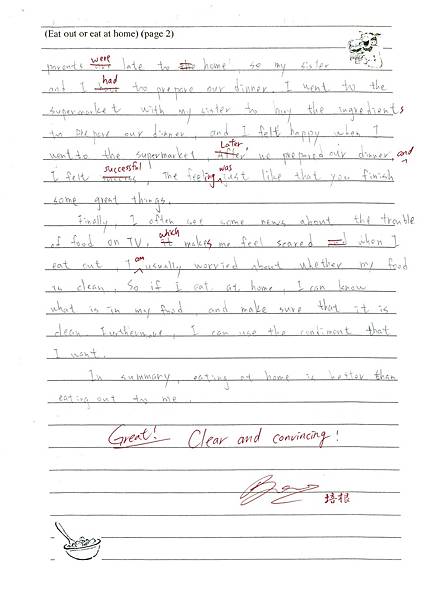 (Eat out or eat at home) (page 2)
were
parents late to home, so my sister
had
and I to prepare our dinner. I went to the
supermarket with my sister to buy the ingredients
to prepare our dinner, and I felt happy when I
Later,
went to the supermarket, After we prepared our dinner, and
successful
was
I felt success, The feeling just like that you finish
some great things.
Finally, I often see some news about the trouble
which
of food on TV, it makes me feel scared and when I
am
eat out, I usually worried about whether my food
is clean. So if I eat at home, I can know
what is in my food, and make sure that it is
clean. Furthermore, I can use the condiment that
I want.
In summary, eating at home is better than
eating out to me.
Great! Clear and convincing!
培根